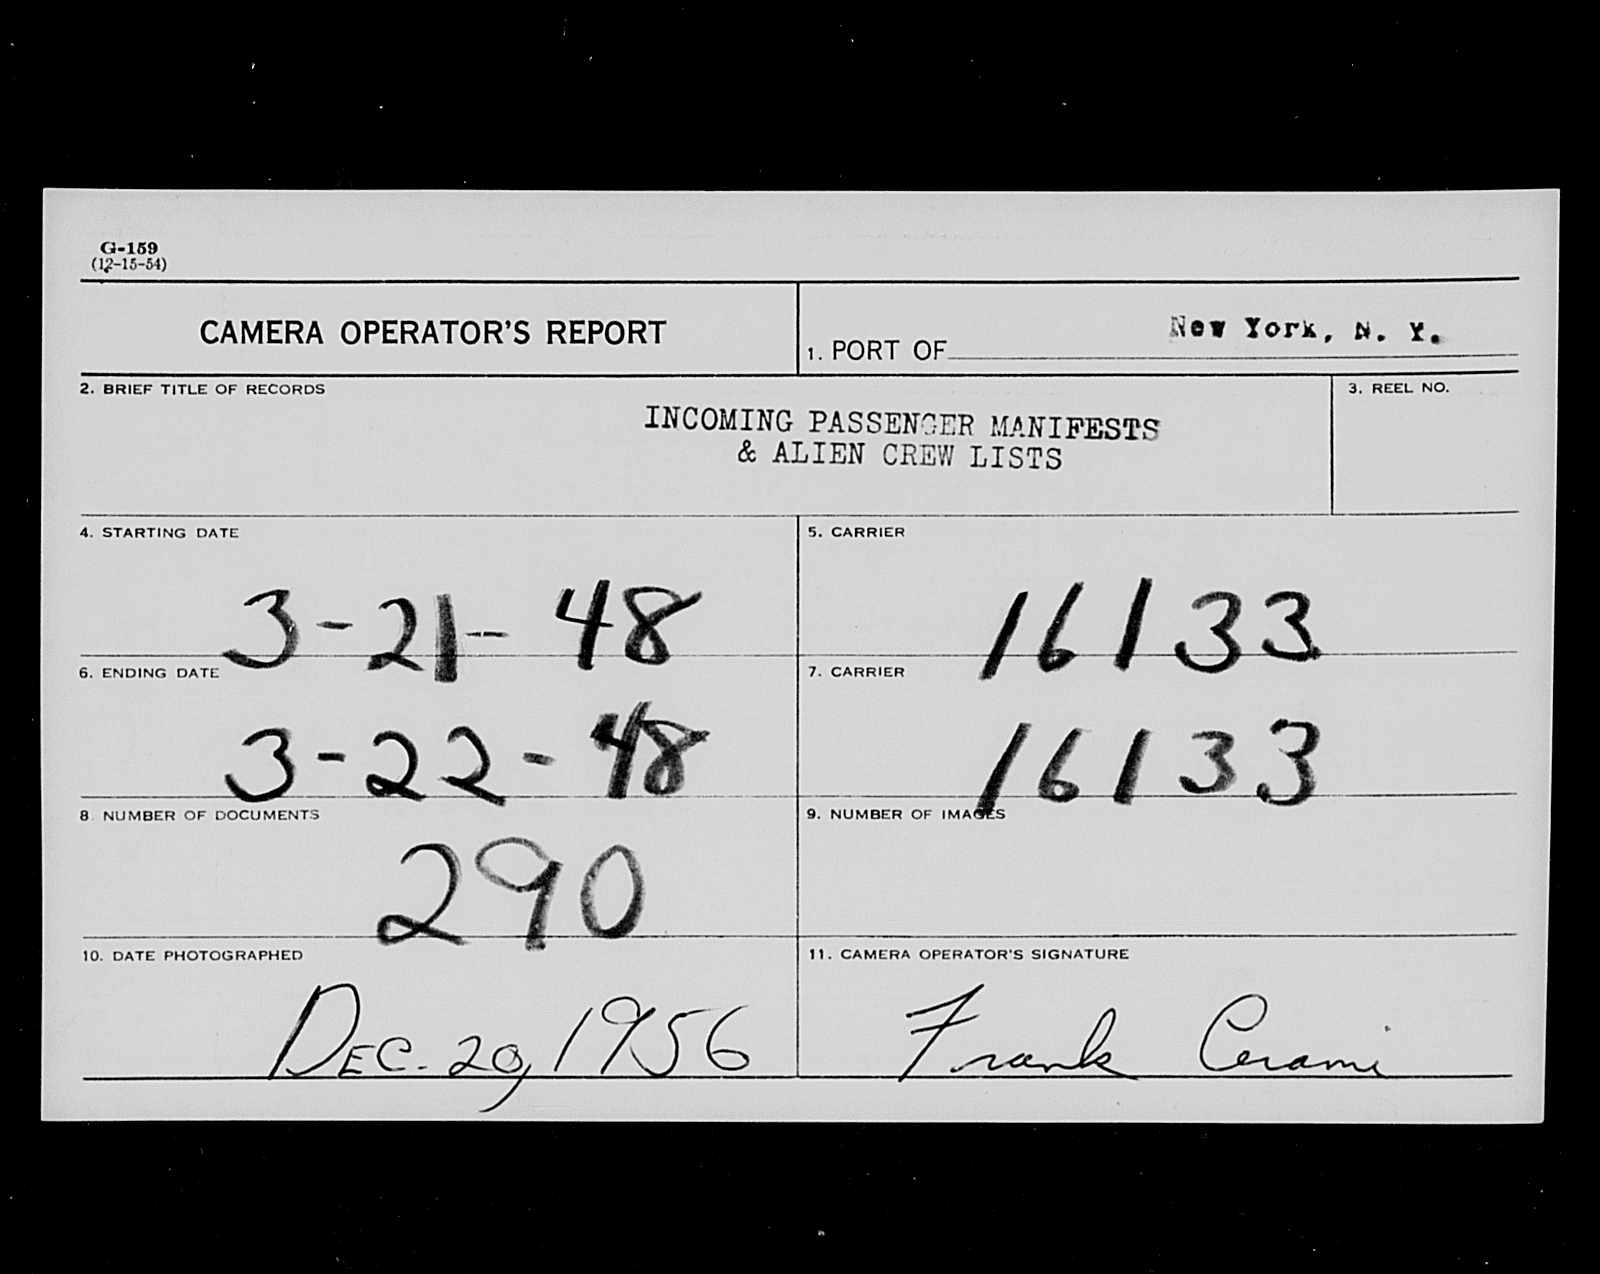 G-159
(12-15-54)
CAMERA OPERATOR'S REPORT
1. PORT OF New York, N. Y.
2. BRIEF TITLE OF RECORDS
INCOMING PASSENGER MANIFESTS
& ALIEN CREW LISTS
3. REEL NO.
4. STARTING DATE
3-21-48
5. CARRIER
16133
6. ENDING DATE
3-22-48
7. CARRIER
16133
8. NUMBER OF DOCUMENTS
290
9. NUMBER OF IMAGES
10. DATE PHOTOGRAPHED
DEC. 20, 1956
11. CAMERA OPERATOR'S SIGNATURE
Frank Cerami